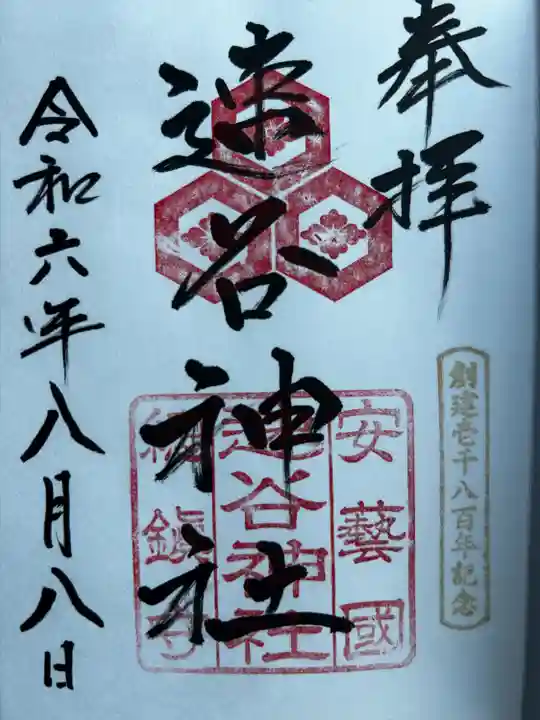 奉拝
創建壱千八百年記念
速谷神社
安藝國
速谷神社
総鎮守
令和六年八月八日